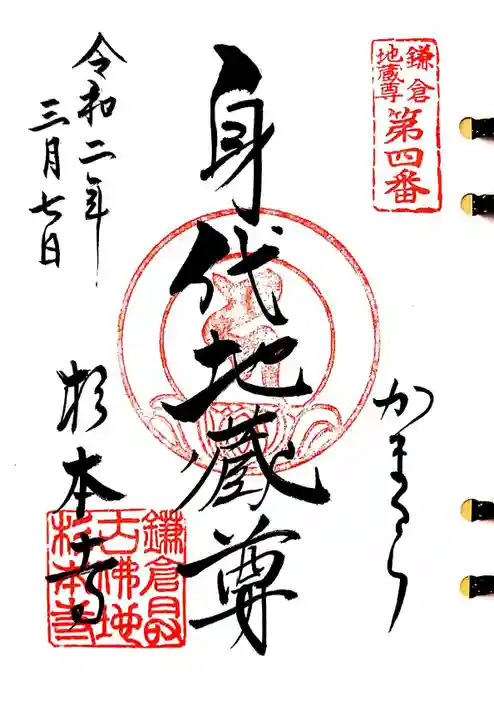 鎌倉
地蔵尊
第四番
かまくら
身代地蔵尊
令和二年
三月七日
杉本寺
鎌倉最
古佛地
杉本寺